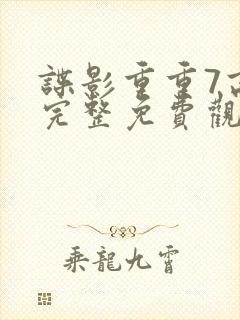 諜影重重7高
完整免費觀
乘龍九霄